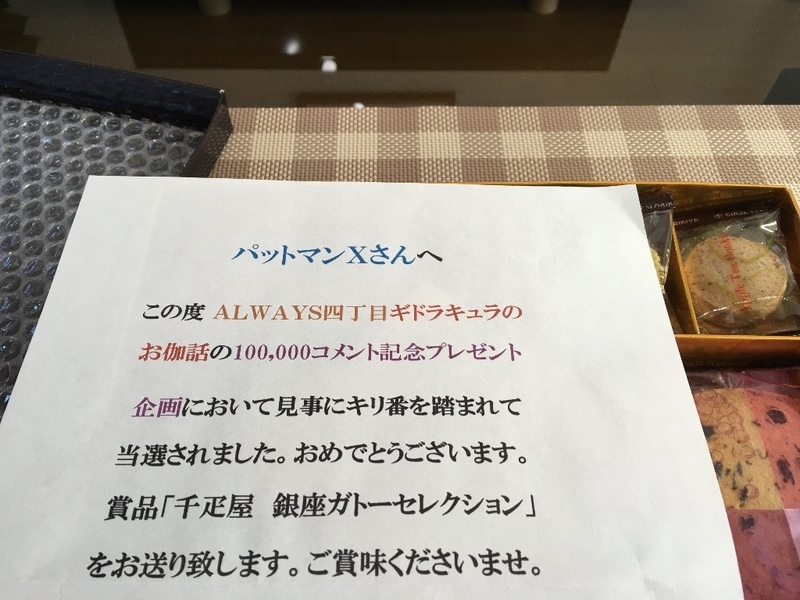 パットマンXさんへ
この度 ALWAYS四丁目ギドラキュラの
お伽話の100,000コメント記念プレゼント
企画において見事にキリ番を踏まれて
当選されました。おめでとうございます。
賞品「千疋屋 銀座ガトーセレクション」
をお送り致します。ご賞味くださいませ。